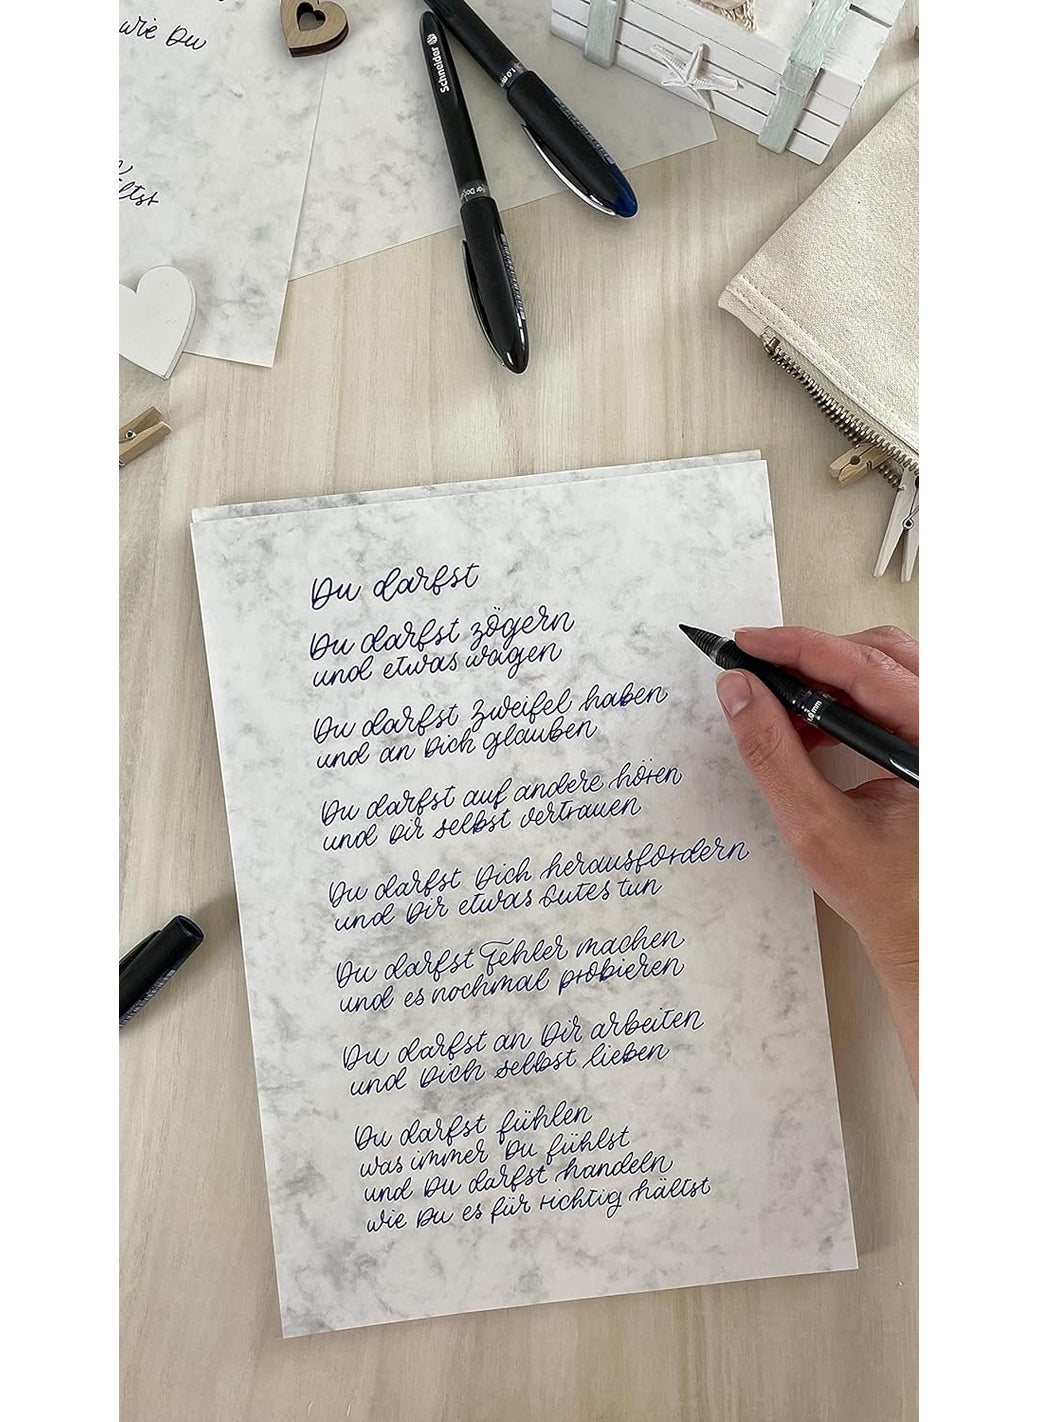 wie Du
Schneider
1.0 mm
Du darfst
Du darfst zögern
und etwas wagen
Du darfst Zweifel haben
und an Dich glauben
Du darfst auf andere hören
und Dir selbst vertrauen
Du darfst Dich herausfordern
und Dir etwas Gutes tun
Du darfst Fehler machen
und es nochmal probieren
Du darfst an Dir arbeiten
und Dich selbst lieben
Du darfst fühlen
was immer Du fühlst
und Du darfst handeln
wie Du es für richtig hältst